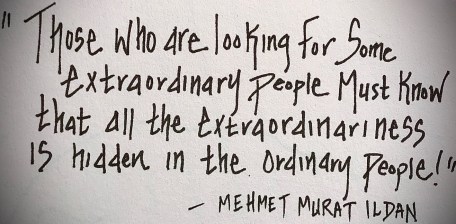 "Those who are looking for Some
extraordinary people Must Know
that all the extraordinariness
is hidden in the ordinary people!"
- MEHMET MURAT ILDAN